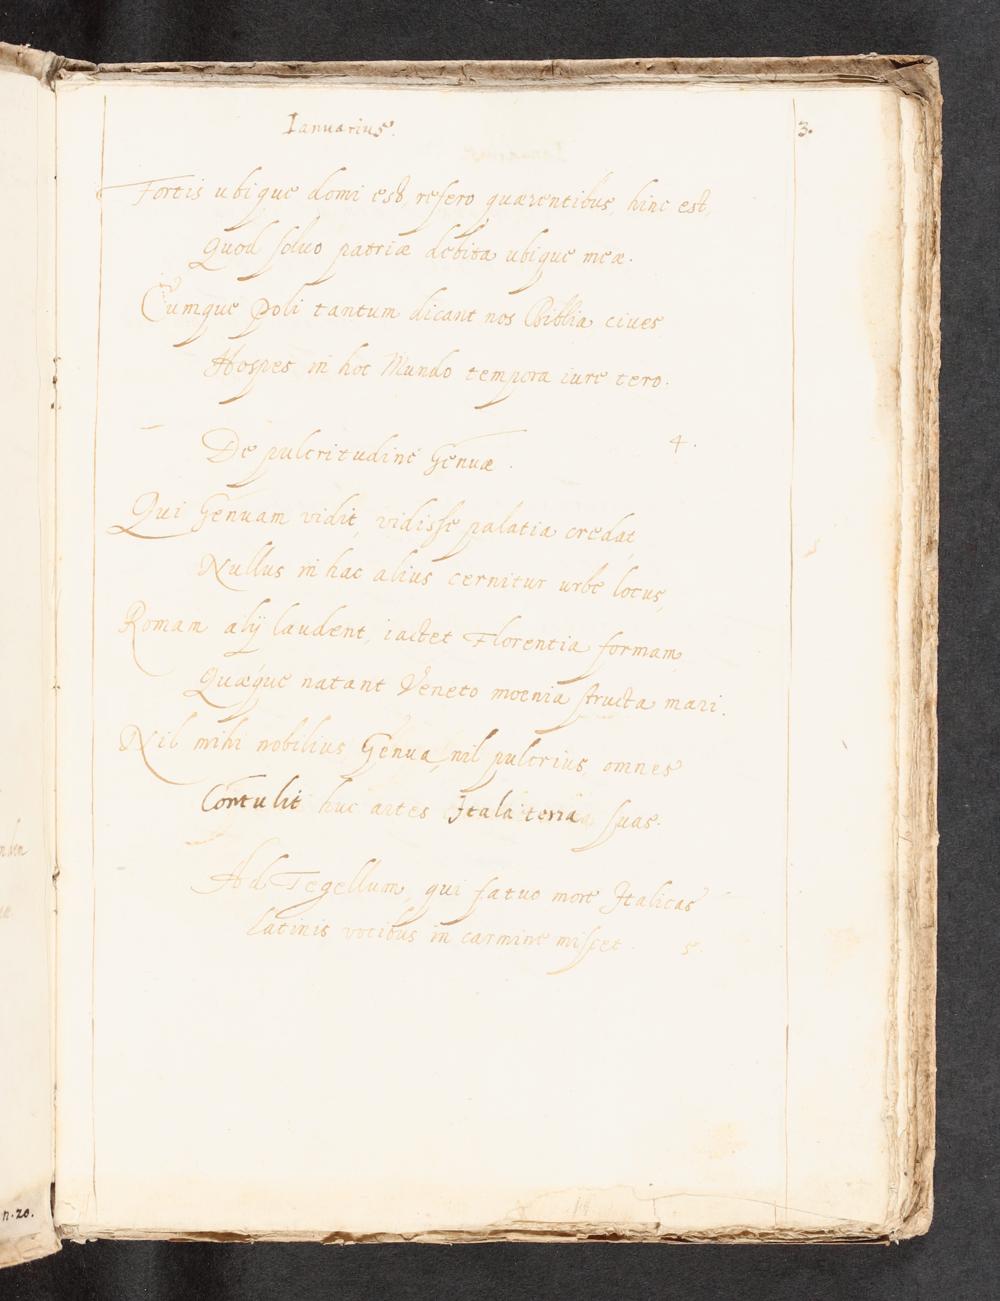 Ianuarius.
3.
Fortis ubique domi est, resero quærentibus, hinc est,
Quod soluo patriæ debita ubique meæ.
Cumque Poli tantum dicant nos Biblia ciues
Hospes in hoc Mundo tempora iure tero.
De pulcritudine Genuæ. 4.
Qui Genuam vidit, vidisse palatia credat,
Nullus in hac alius cernitur urbe locus,
Romam alij laudent, iactet Florentia formam
Quæque natant Veneto moenia structa mari.
Nil mihi nobilius Genua, nil pulcrius, omnes
Contulit huc artes Itala terra suas.
Ad Tegellum, qui fatuo more Italicas
Latinis vocibus in carmine miscet. 5.
n.20.